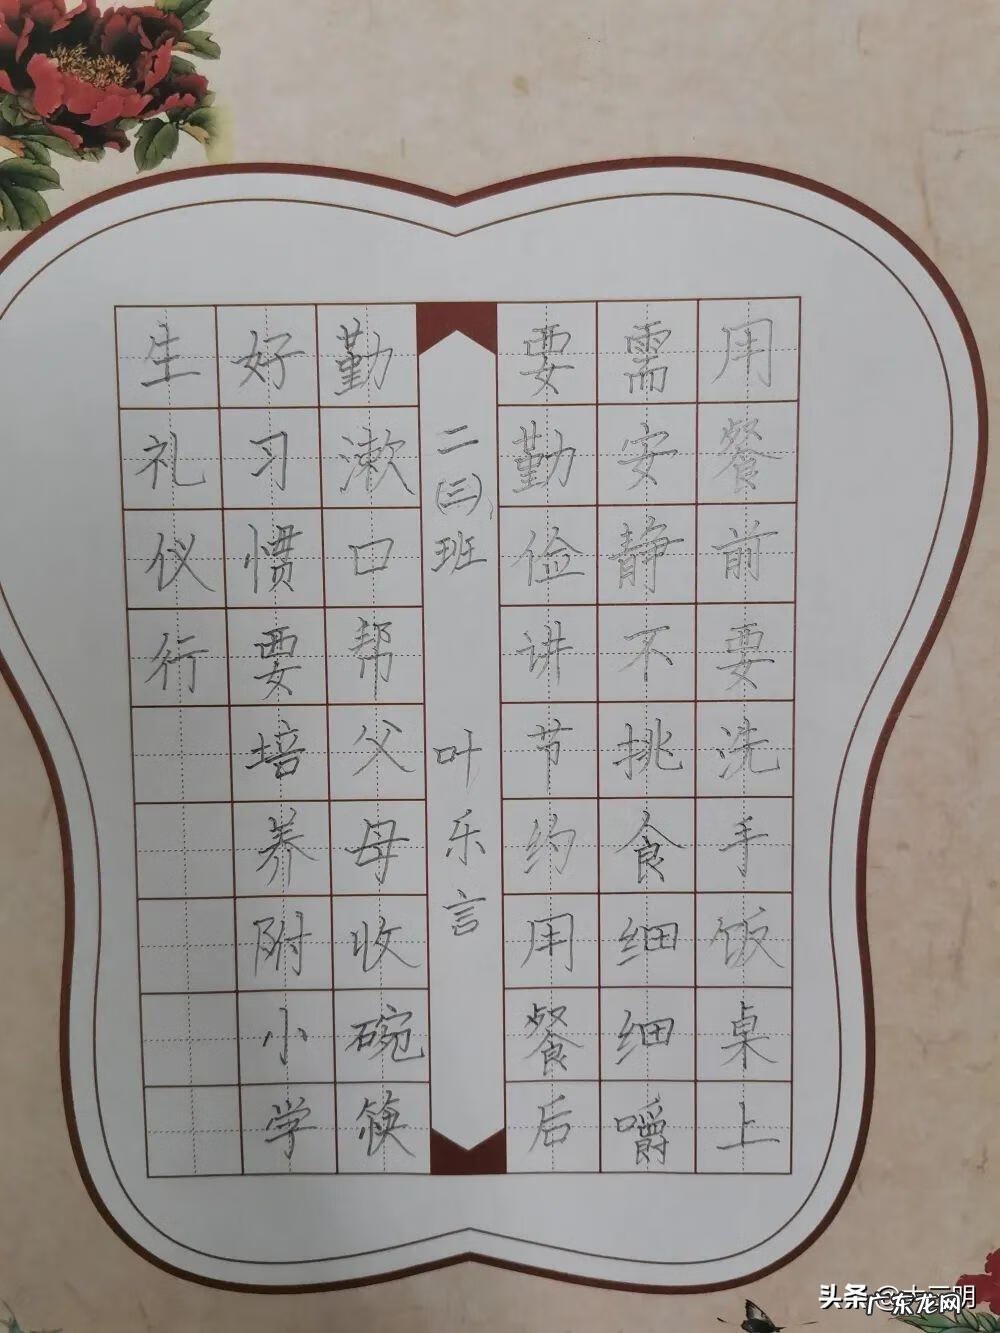 用餐前要洗手饭桌上
需安静不挑食细细嚼
要勤俭讲节约用餐后
二(三)班 叶乐言
勤漱口帮父母收碗筷
好习惯要培养附小学
生礼仪行
头条
广东龙网